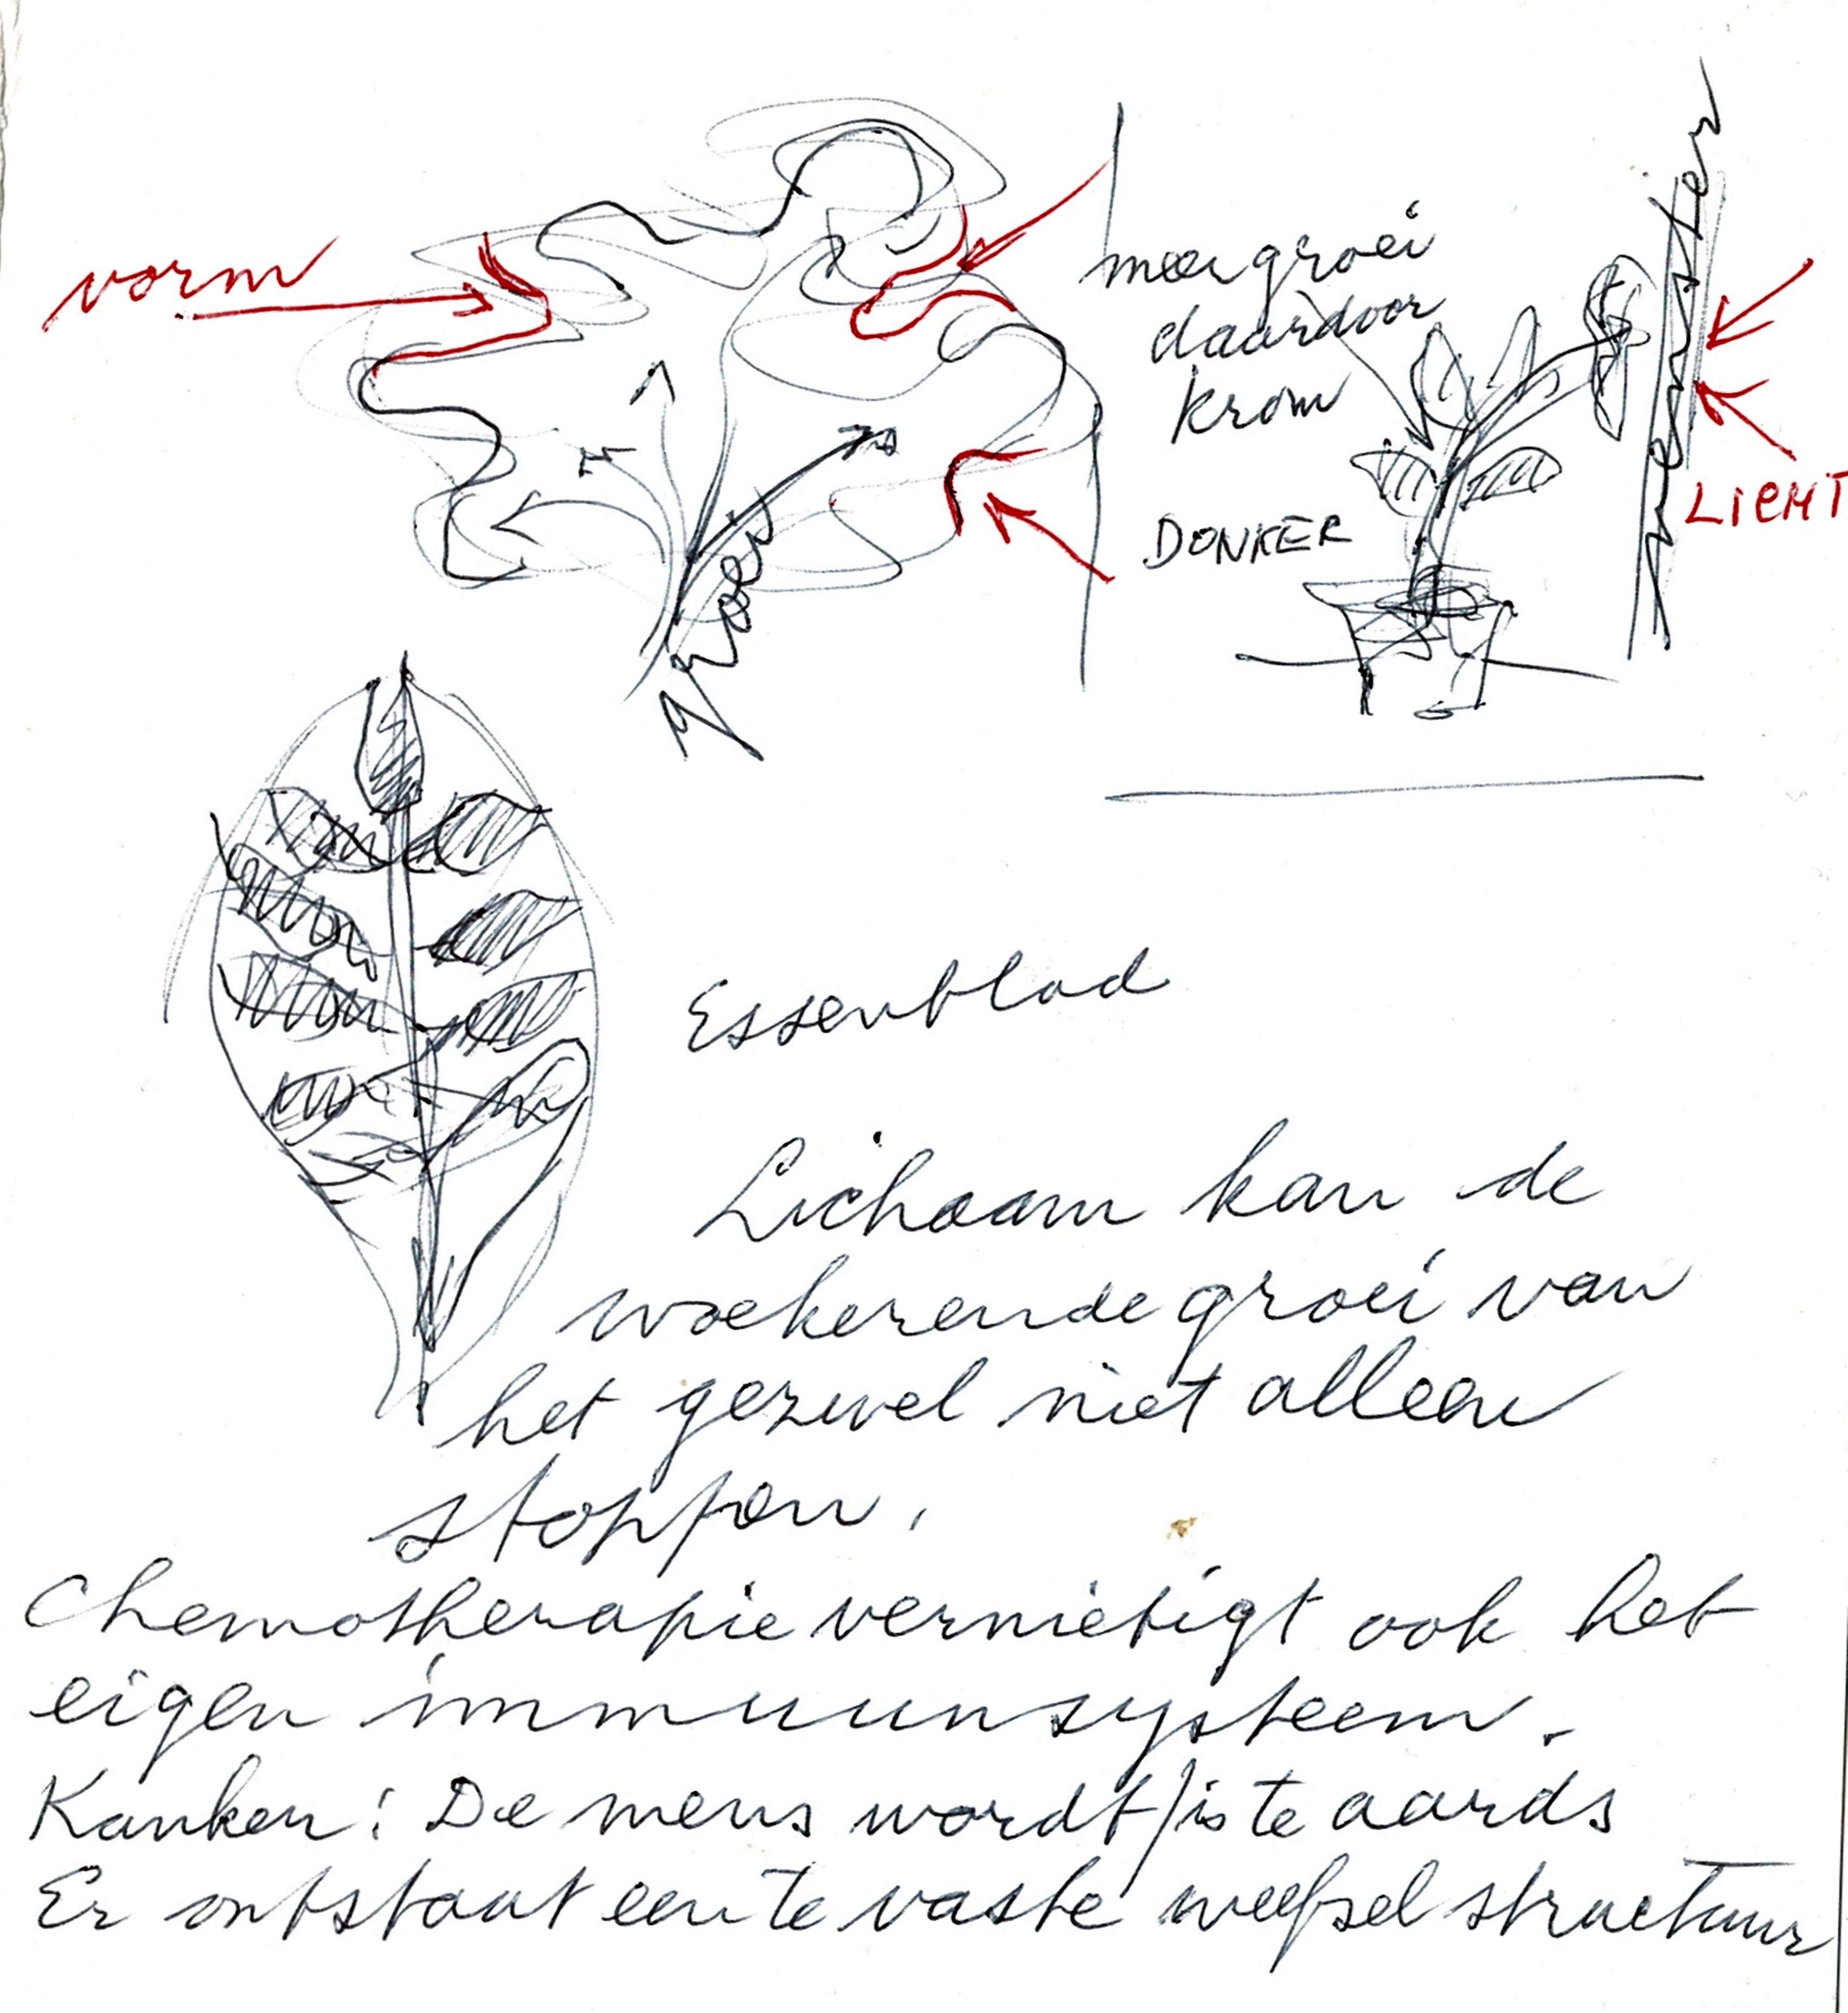 vorm
groei
meer groei
daardoor
krom
DONKER
venster
LICHT
Essenblad
Lichaam kan de
woekerende groei van
het gezwel niet alleen
stoppen.
Chemotherapie vernietigt ook het
eigen immuunsysteem.
Kanker: De mens wordt/is te aards
Er ontstaat een te vaste weefselstructuur